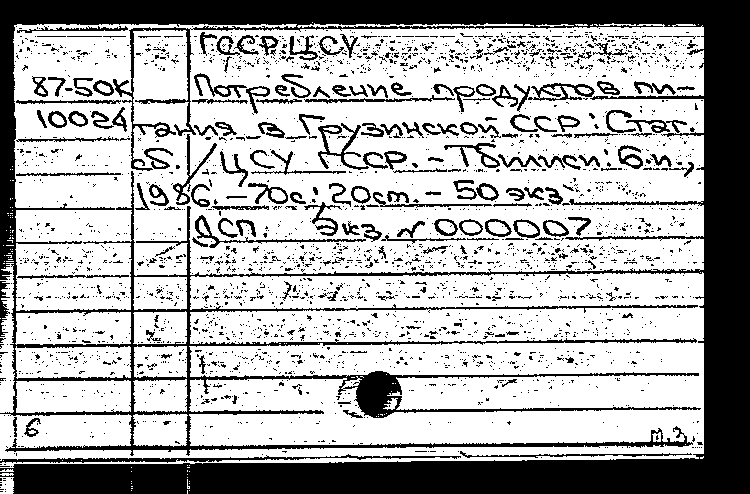 ГССР. ЦСУ
87-50К Потребление продуктов пи-
10024 тания в Грузинской ССР: Стат.
сб. / ЦСУ ГССР. - Тбилиси: б.и.,
1986. - 70с.; 20см. - 50 экз.
ДСП. Экз. № 000007
6 м.з.